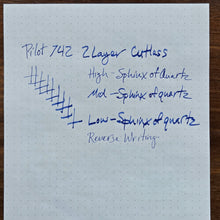 Pilot 742 2 Layer Cutlass
High - Sphinx of Quartz
Med - Sphinx of quartz
Low - Sphinx of quartz
Reverse Writing